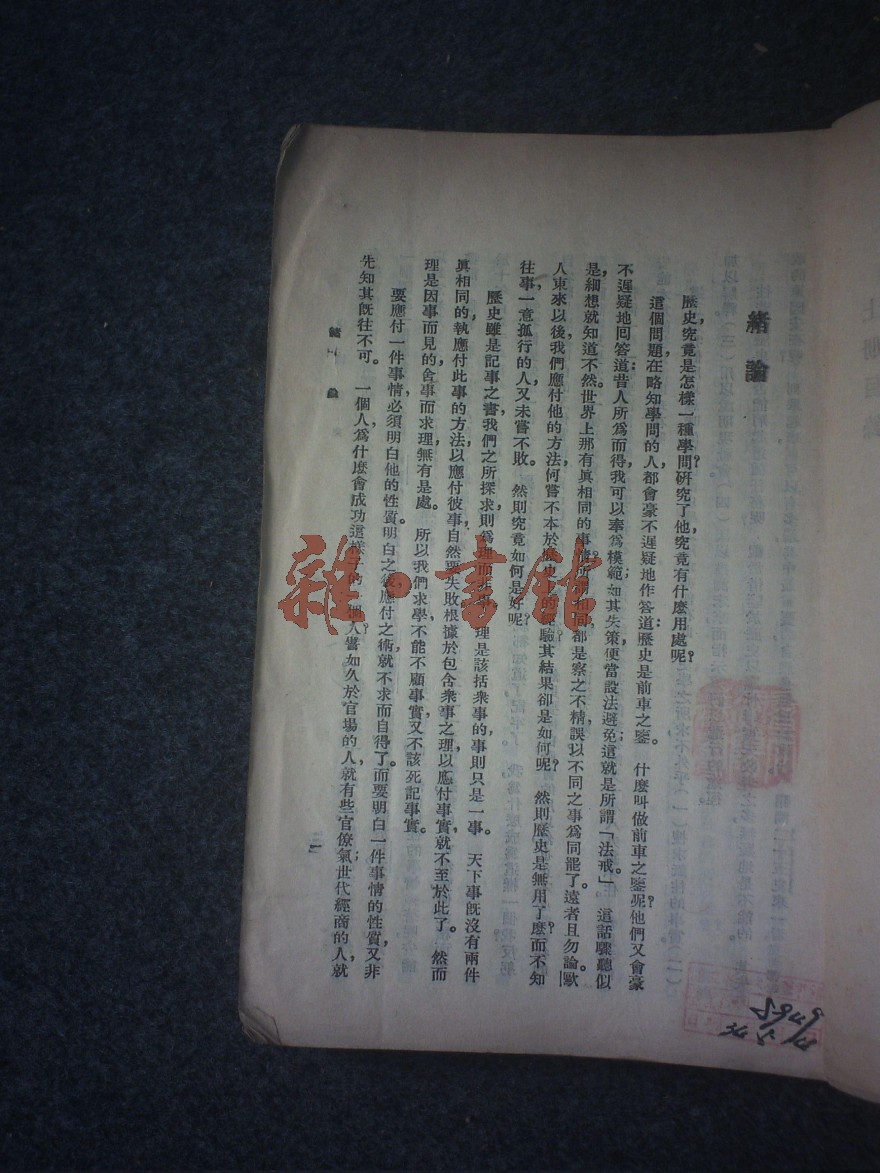 緒論
歷史，究竟是怎樣一種學問？研究了他，究竟有什麼用處呢？
這個問題，在略知學問的人，都會毫不遲疑地作答道：歷史是前車之鑒。什麼叫做前車之鑒呢？他們又會毫
不遲疑地回答道：昔人所爲而得，我可以奉爲模範；如其失策，便當設法避免；這就是所謂「法戒」。這話驟聽似
是，細想就知道不然。世界上那有真相同的事情？所謂相同，都是察之不精，誤以不同之事爲同罷了。遠者且勿論。歐
人東來以後，我們應付他的方法，何嘗不本於歷史上的經驗？其結果卻是如何呢？然則歷史是無用了麼？而不知
往事，一意孤行的人，又未嘗不敗。然則究竟如何是好呢？
歷史雖是記事之書，我們之所探求，則爲理而非事。理是該括衆事的，事則只是一事。天下事既沒有兩件
真相同的，執應付此事的方法，以應付彼事，自然要失敗。根據於包含衆事之理，以應付事實，就不至於此了。然而
理是因事而見的，舍事而求理，無有是處。所以我們求學，不能不顧事實，又不該死記事實。
要應付一件事情，必須明白他的性質。明白之後，應付之術，就不求而自得了。而要明白一件事情的性質，又非
先知其既往不可。一個人，爲什麼會成功這樣子的一個人？譬如久於官場的人，就有些官僚氣；世代經商的人，就
緒論
雜·書館